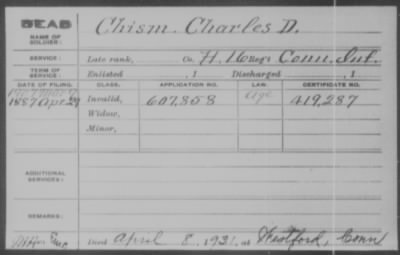 DEAD
NAME OF SOLDIER:
Chism. Charles D.
SERVICE:
Late rank, Co. H. 16 Reg't Conn. Inf.
TERM OF SERVICE:
Enlisted , 1 Discharged , 1
DATE OF FILING.
CLASS.
APPLICATION NO.
LAW.
CERTIFICATE NO.
1887 Apr. 29
Invalid,
607,858
Age
419,287
Widow,
Minor,
ADDITIONAL SERVICES:
REMARKS:
Died April 8, 1931, at Westford, Conn